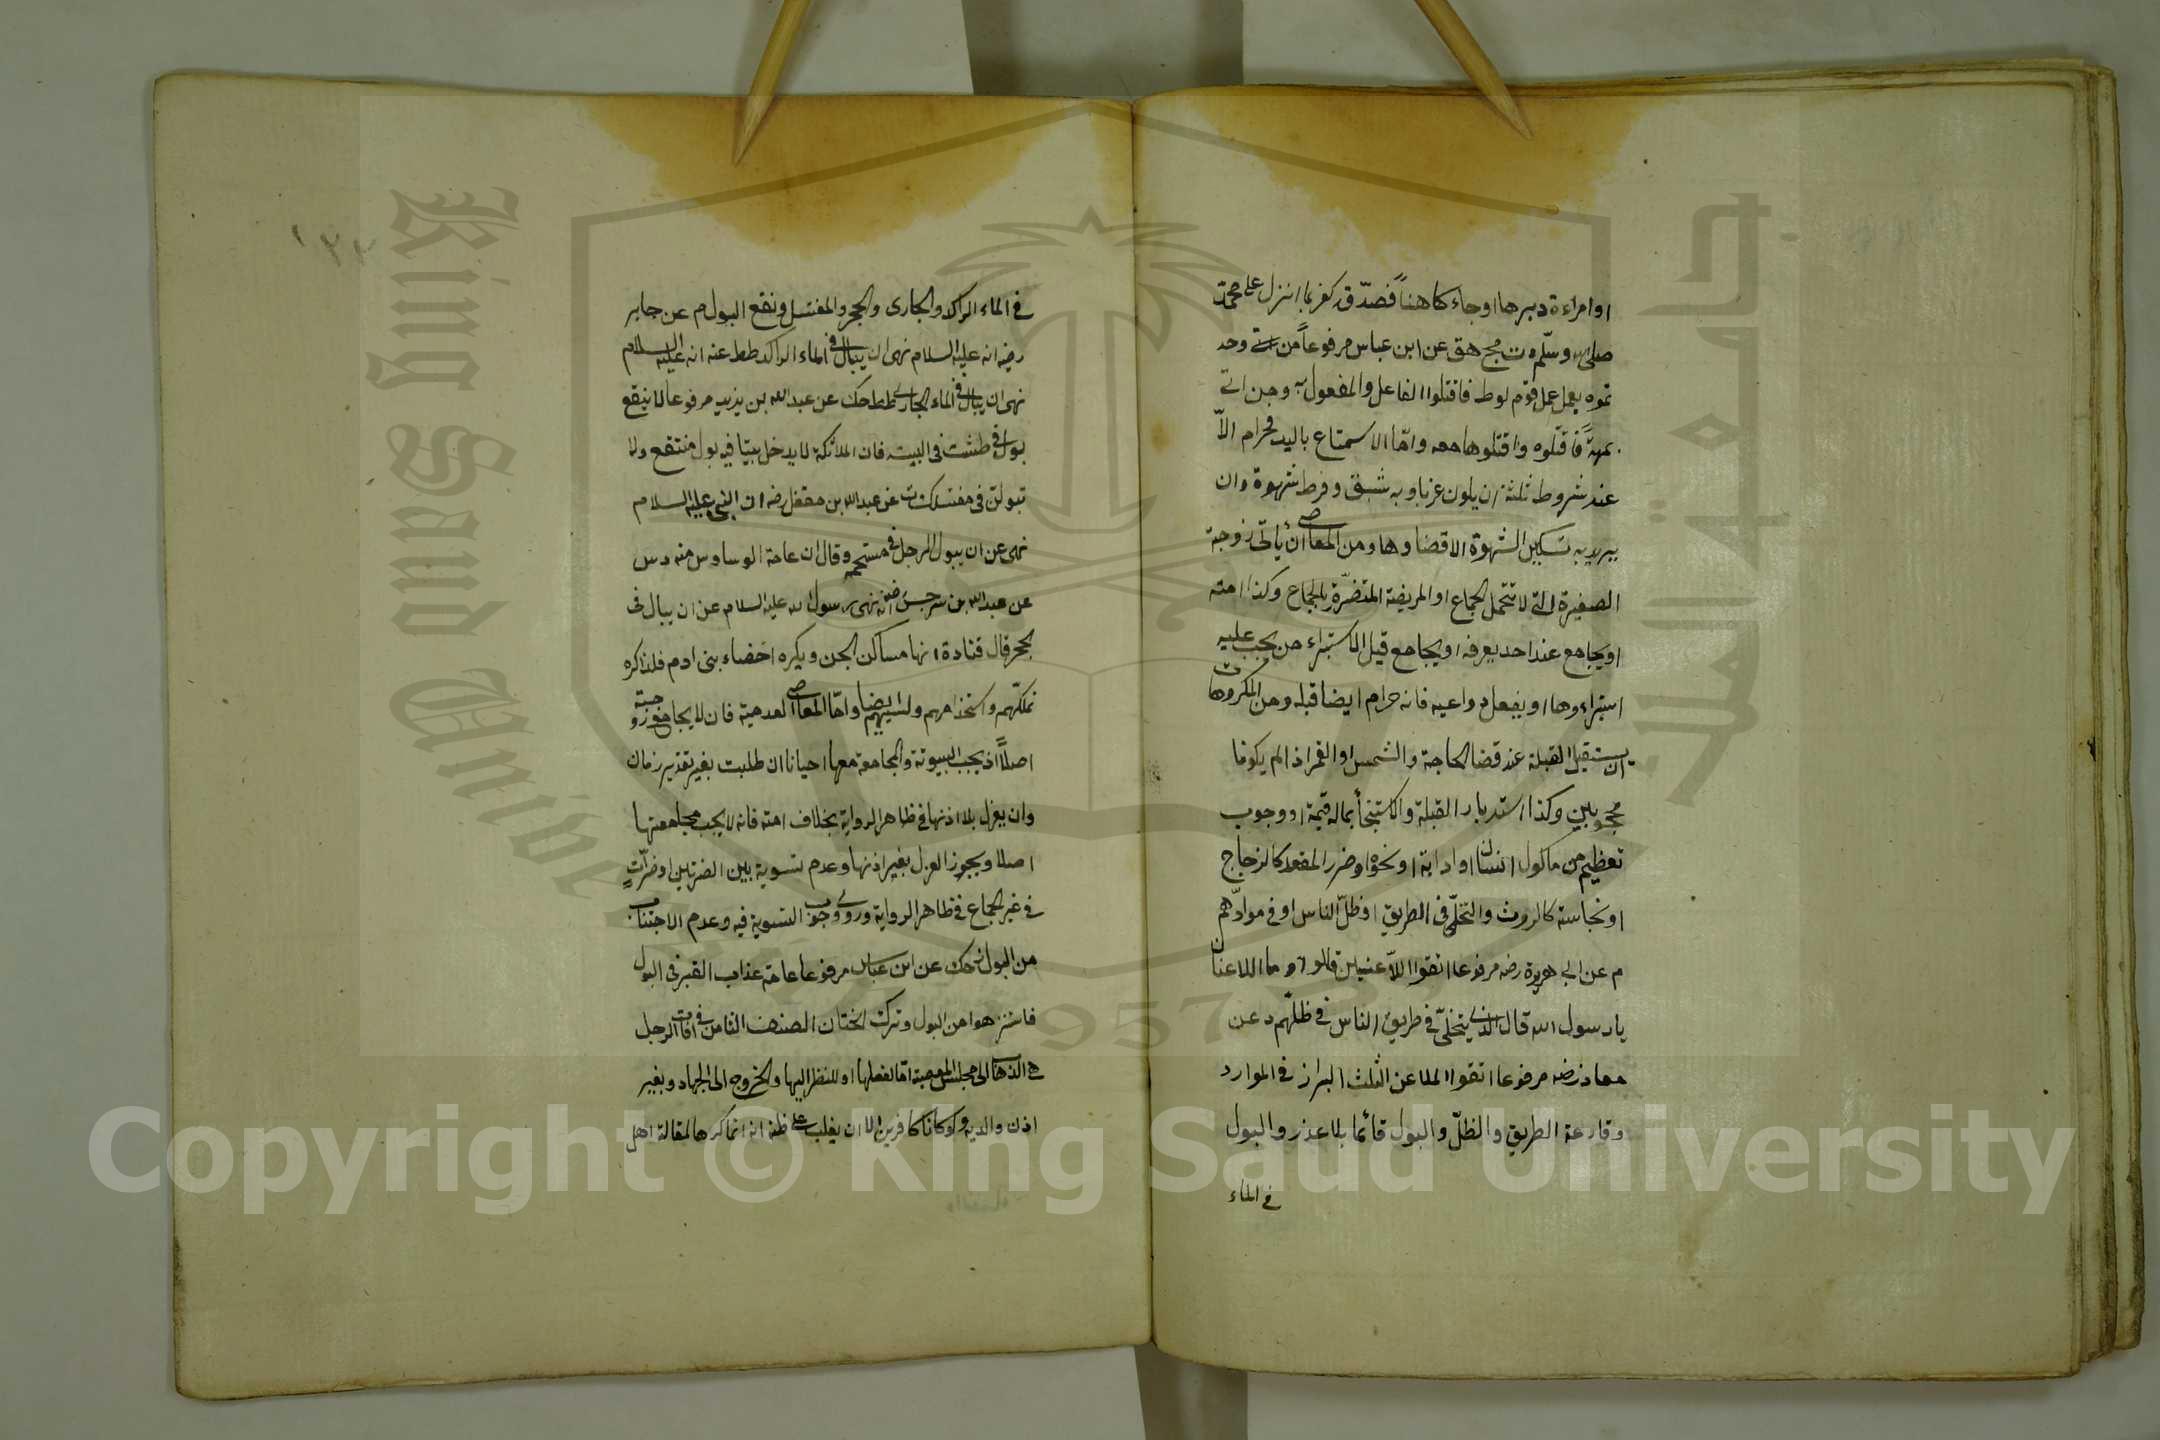 اوامراءة دبرها اوجاء كاهناً فصدّق كفر بما انزل على محمّد
صلى الله وسلّم ت مج هق عن ابن عباس مرفوعاً من وجد
تموه يعمل عمل قوم لوط فاقتلوا الفاعل والمفعول به ومن اتى
بهيمةً فاقتلوه واقتلوها معه وامّا الاستمتاع باليد فحرام الاّ
عند شروط ثلثة ان يكون عزبا وبه شبق وفرط شهوة وان
يريد به تسكين الشهوة لا قضاءها ومن المعاصى ان يأتى زوجة
الصغيرة التى لا تتحمل الجماع او المريضة المتضرّرة بالجماع وكذا امته
او يجامع عند احد يعرفه او يجامع قبل الاستبراء من يجب عليه
استبراؤها او يفعل دواعيه فانه حرام ايضا قبله ومن المكروهات
ان يستقبل القبلة عند قضاء الحاجة والشمس او القمر اذا لم يكونا
محجوبين وكذا استدبار القبلة والاستنجاء بماله قيمة او وجوب
تعظيم من مأكول انسان او دابة او نحوه او ضرر المقعد كالزجاج
او نجاسة كالروث والتخلّى فى الطريق او ظلّ الناس او فى مواردهم
م عن ابى هريرة رضه مرفوعا اتقوا اللاّعنين قالوا وما اللاعنان
يا رسول الله قال الذى يتخلّى فى طريق الناس فى ظلّهم د عن
معاذ رضه مرفوعا اتقوا الملاعن الثلث البراز فى الموارد
وقارعة الطريق والظلّ والبول قائما بلا عذر والبول
فى الماء
١٣٣
فى الماء الراكد والجارى والحجر والمغتسل ونقع البول م عن جابر
رضه انه عليه السلام نهى ان يبال فى الماء الراكد طط عنه انه عليه السلام
نهى ان يبال فى الماء الجارى طط حك عن عبد الله بن يزيد مرفوعا لا ينقع
بول فى طشت فى البيت فان الملائكة لا يدخل بيتا فيه بول منتقع ولا
تبولن فى مغتسلك ت عن عبد الله بن مغفل رضه ان النبى عليه السلام
نهى عن ان يبول الرجل فى مستحمه وقال ان عامة الوساوس منه د س
عن عبد الله بن سرجس انه نهى رسول الله عليه السلام عن ان يبال فى
جحر قال قتادة انها مساكن الجن ويكره اخصاء بنى ادم فلذا كره
تملكهم واستخدامهم ايضا وامّا المعاصى العدمية فان لا يجامع زوجته
اصلاً اذ يجب البيتوتة والمجامعة معها احيانا ان طلبت بغير تقدير زمان
وان يعزل بلا اذنها فى ظاهر الرواية بخلاف امته فانه لا يجب مجامعتها
اصلا ويجوز العزل بغير اذنها وعدم تسوية بين الضرتين او ضرّاتٍ
فى غير الجماع فى ظاهر الرواية وروى وجوب التسوية فيه وعدم الاجتناب
من البول حك عن ابن عباس مرفوعا عامة عذاب القبر فى البول
فاستنزهوا من البول وترك الختان الصنف الثامن فى افات الرجل
هى الذهاب الى مجلس المعصية امّا لفعلها او للنظر اليها والخروج الى الجهاد وبغير
اذن والديه ولو كانا كافرين الا ان يغلب على ظنه انه انما كرها لمقالة اهل
King Saud University
1957
Copyright © King Saud University